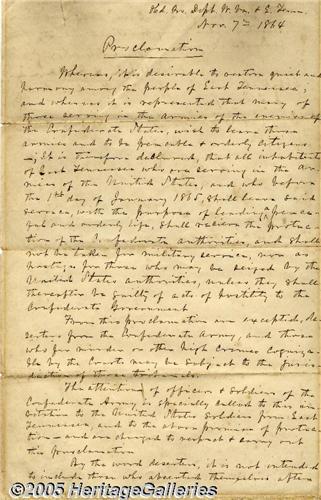 Hd. Qrs. Dept. W. Va. & E. Tenn.
Nov. 7th 1864
Proclamation
Whereas, it is desirable to restore quiet and
harmony among the people of East Tennessee,
and whereas it is represented that many of
those serving in the Armies of the enemies of
the Confederate States, wish to leave those
armies and to be peaceable & orderly citizens
—; It is therefore declared, that all inhabitants
of East Tennessee who are serving in the Ar-
mies of the United States, and who before
the 1st day of January 1865, shall leave said
service, with the purpose of leading a peace-
ful and orderly life, shall receive the protec-
tion of the Confederate authorities, and shall
not be taken for military service, nor as
hostages for those who may be seized by the
United States authorities, unless they shall
thereafter be guilty of acts of hostility to the
Confederate Government.
From this proclamation are excepted, de-
serters from the Confederate Army, and those
who for murder or other high crimes cogniza-
ble by the Courts may be subject to the juris-
diction of those tribunals.
The attention of officers & soldiers of the
Confederate Army is specially called to this in-
vitation to the United States Soldiers from East
Tennessee, and to the above promise of protec-
tion — and are charged to respect & carry out
this proclamation
By the word deserters, it is not intended
to include those who absented themselves after
© 2005 HeritageGalleries